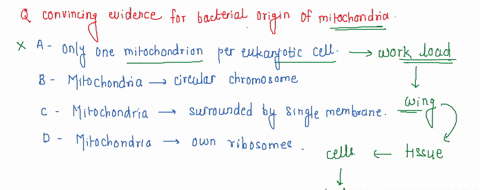 Q convincing evidence for bacterial origin of mitochondria.
X A - only one mitochondrion per eukaryotic cell. → work load
B - Mitochondria → circular chromosome
C - Mitochondria → surrounded by single membrane.
wing
D - Mitochondria → own ribosomes.
cells ← tissue